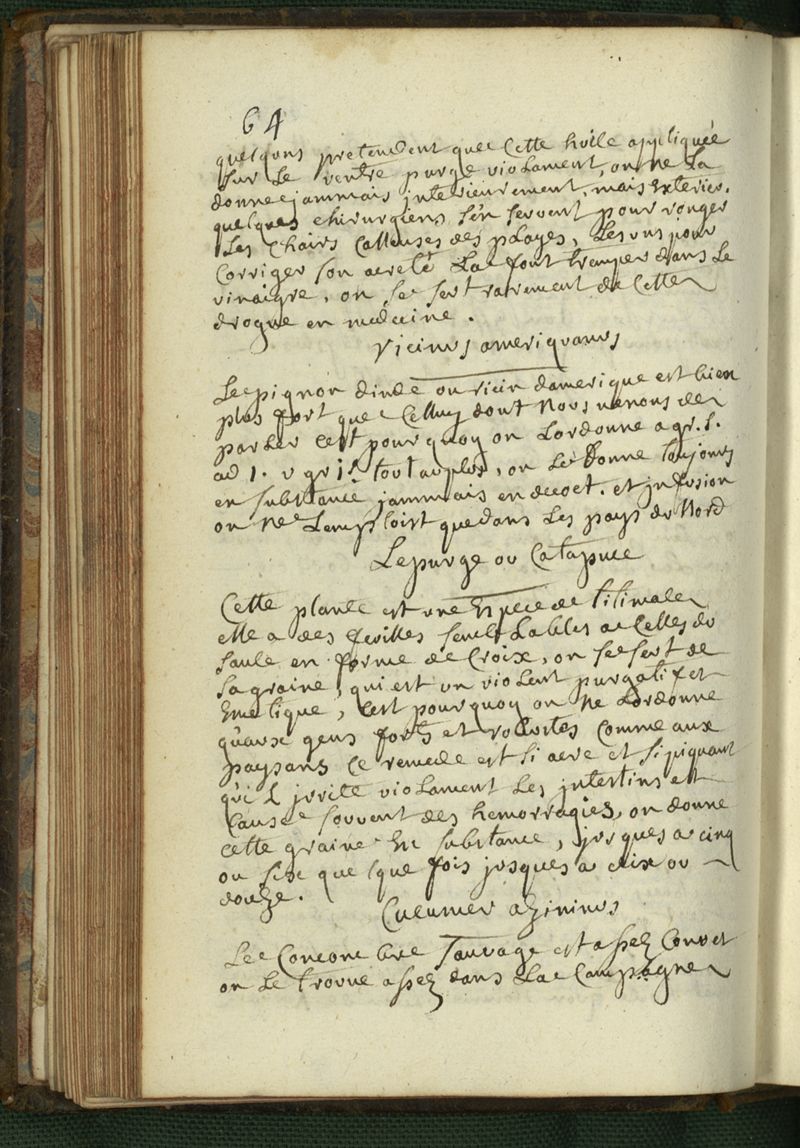 64
quelquns pretendent que Cette huile appliquée
sur Le ventre purge violament, on ne La
donne jammais interieurement, mais Exterier.
quelques chirurgiens s'en servent pour ronger
Les Chairs Calleuses des playes, Les uns pour
Corriger son acreté La font tremper dans Le
vinaigre, on se sert rarement de Cette
drogue en medecine.
Ricinus ameriquanus
Le pignon dinde ou ricin damerique est bien
plus fort que Celluy dont Nous venons de
parler Cest pourquoy on Lordonne a gr. s.
ad 1. v gr is tout au plus, on Le donne toujours
en substance jammais en decoct. et jnfusion
on Ne Lemploist que dans Les pays du Nord
Lepurge ou Catapuce
Cette plante est une Espece de titimale
elle a des feuilles semblables a Celles du
saule en forme de Croix, on se sert de
sa graine, qui est un violent purgatif et
Emetique, Cest pourquoy on Ne Lordonne
quaux gens forts et robustes Comme aux
paysans Ce remede est si acre et si piquant
qu'il jrrite violament Les jntestins et
Cause souvent des hemorragies, on donne
Cette graine En substance, jusques a cinq
ou six quelque fois jusques a dix ou
douze.
Cucumer azininus
Le Concombre sauvage est assez Connu et
on Le trouve assez dans La Campagne